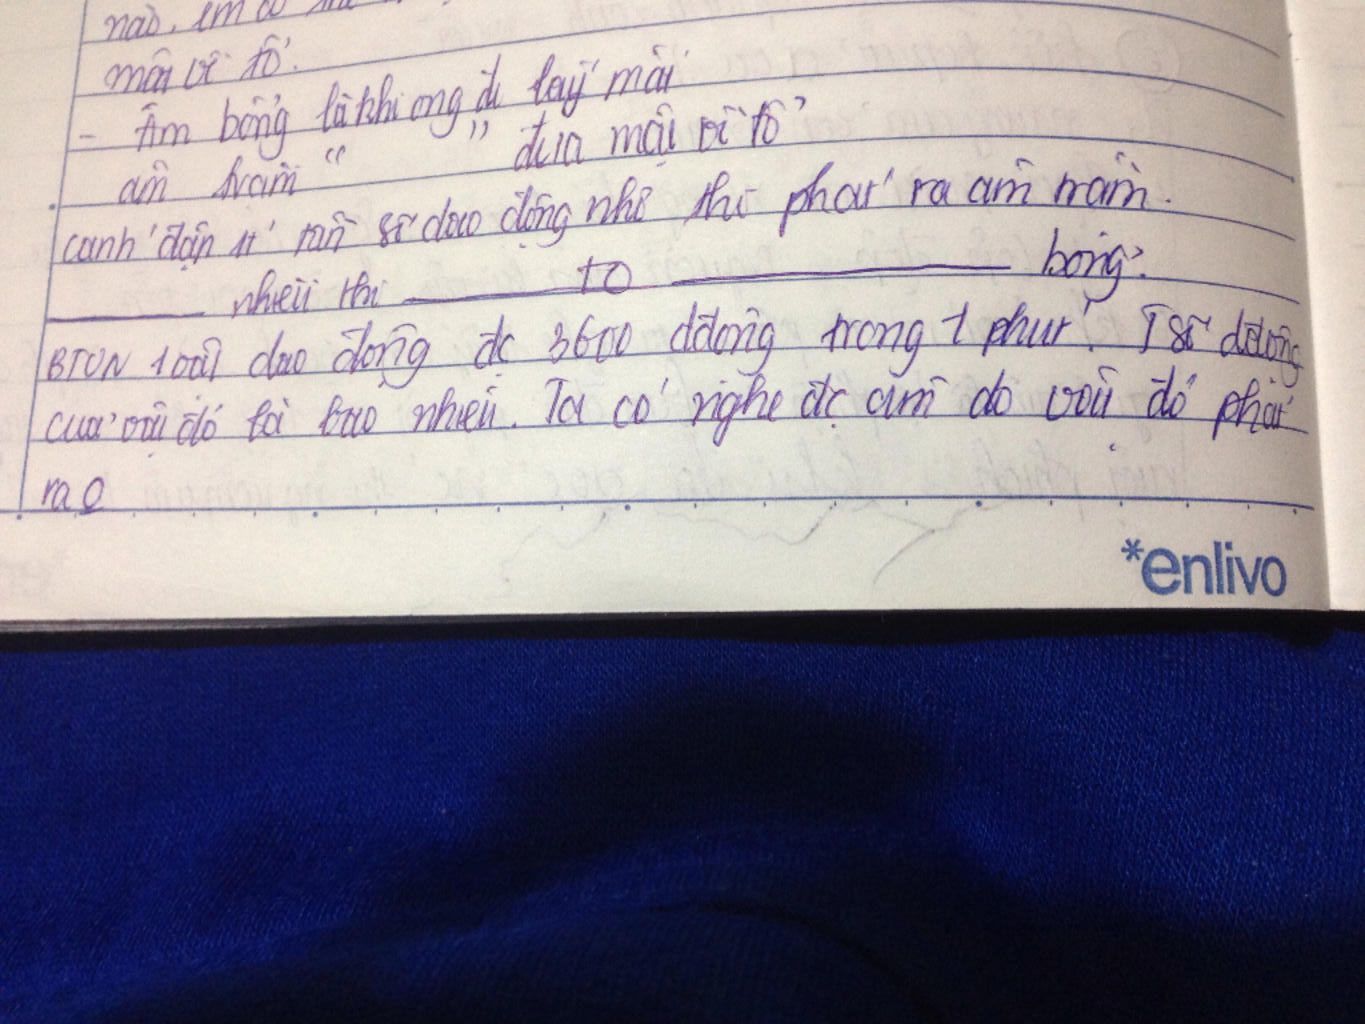 nào. em có
mồi về tổ.
- Âm bổng là khi ong đi lấy mồi
âm trầm " " đưa mồi về tổ
cánh đập ít tần số dao động nhỏ thì phát ra âm trầm.
nhiều thì to bổng.
BTVN 1 vật dao động đc 3600 ddộng trong 1 phút. T số ddộng
của vật đó là bao nhiêu. Ta có nghe đc âm do vật đó phát
ra o
*enlivo